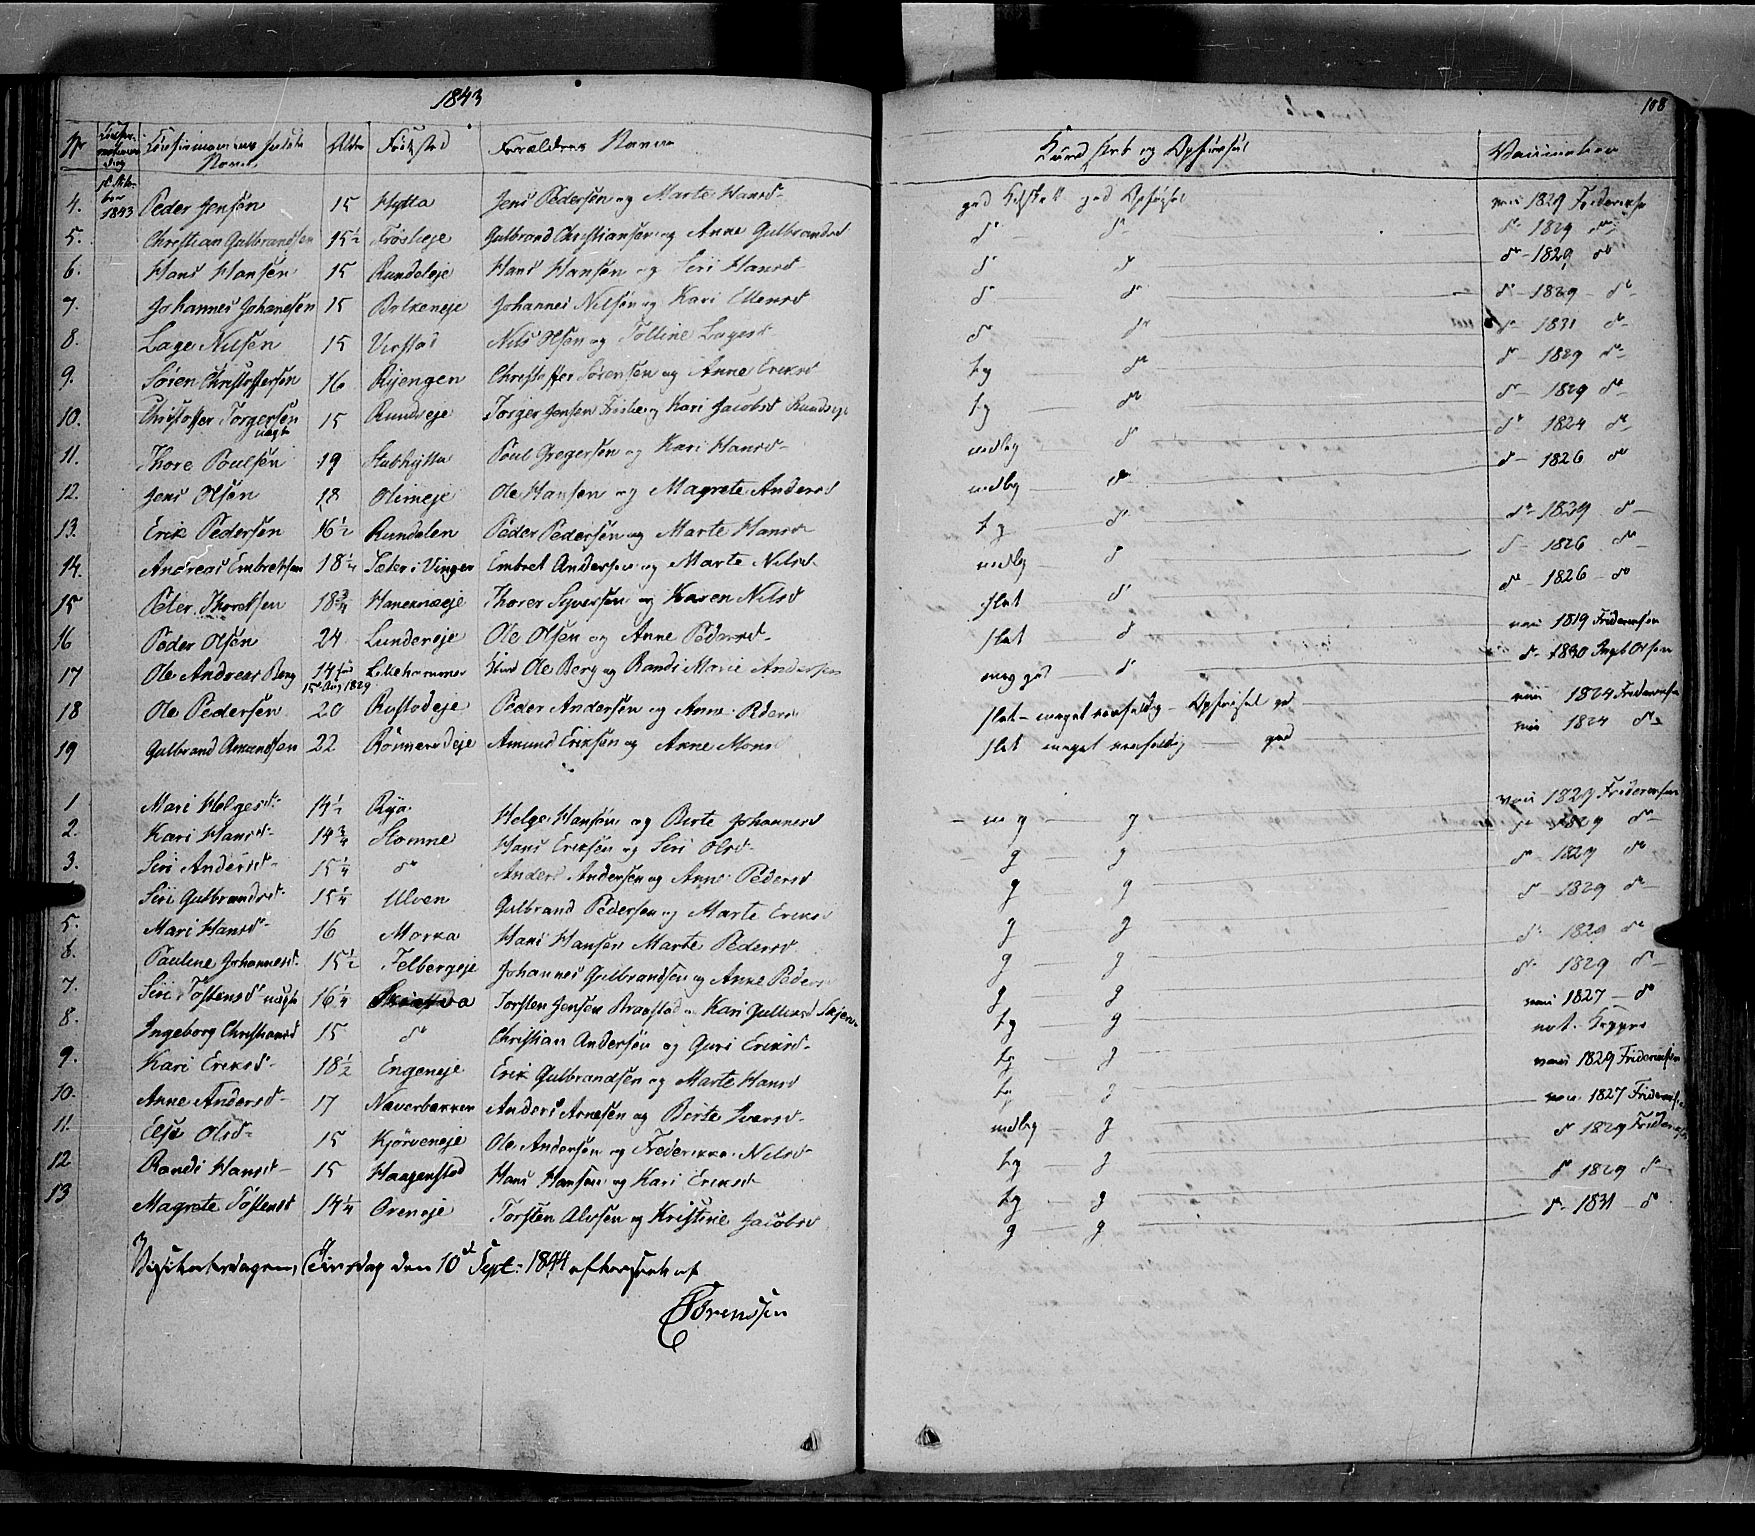 1843
108
Nr Confirmationsdag Confirmanternes fulde Navn Alder Födested Forældres Navn Kundskab og Opförsel Vaccination
1843
4. Peder Jensen 15 Hytta Jens Pedersen og Marte Hansd. god Kdskab god Opförsel vacc 1829 Frideriksen
5. Christian Gulbrandsen 15½ Gulbrand Christiansen og Anne Gulbrandsd d° d° d° 1829 d°
6. Hans Hansen 15 Rundeleje Hans Hansen og Siri Hansd. d d d° 1829 d°
7. Johannes Johanesen 15 Johannes Nilsen og Kari Ellensd d d° d 1829 d°
8. Lage Nilsen 15 Nils Olsen og Lagesd d° d° d° 1831 d°
9. Sören Christoffersen 16 Ryengen Christoffer Sörensen og Anne Eriksd tg d° d 1829 d°
10. Christoffer Torgersen uægte 15 Rundeeje Torger Jensen og Kari Jacobsd tg d° d 1829 d°
11. Thore Poulsen 19 Stubhytta Poul Gregersen og Kari Hansd. mdlg d d° 1824 d°
12. Jens Olsen 18 Olimeje Ole Hansen og Magrete Andersd mdlg d° d 1826 d°
13. Erik Pedersen 16½ Rundelen Peder Pedersen og Marte Hansd tg d° d° 1829 d
14. Andreas Embretsen 18¼ Sæter i Vinger Embret Andersen og Marte Nilsd. mdlg d d 1826 d°
15 Peter Thoresen 18¾ Thorer Syversen og Karen Nilsd slet d d° 1826 d°
16 Peder Olsen 24 Lundereje Ole Olsen og Anne Pedersd. slet d vacc 1819 Frideriksen
17 Ole Andreas Berg 14 15 Aug 1829 Lillehammer Ole Berg og Randi Marie Andersen meg god d d° 1830 Ingb Olsen
18 Ole Pedersen 20 Rustadeje Peder Andersen og Anne Pedersd slet – meget eenfoldig – Opförsel gd vacc 1824 Frideriksen
19 Gulbrand Amundsen 22 Amund Eriksen og Anne Monsd slet meget eenfoldig god vacc 1824 d°
1 Mari Helgesd. 14½ Rya Helge Hansen og Berte Johannesd mg g vacc 1829 Frideriksen
2. Kari Hansd. 14¾ Stomne Hans Eriksen og Siri Olsd. g g d° 1829 d°
3. Siri Andersd. 15¼ d° Anders Andersen og Anne Pedersd g g d° 1829 d°
Siri Gulbrandsd. 15¼ Ulven Gulbrand Pedersen og Marte Eriksd g g d 1829 d°
5. Mari Hansd. 16 Morka Hans Hansen Marte Pedersd g g d° 1829 d°
6. Pauline Johannesd. 15½ Felbergeje Johannes Gulbrandsen og Anne Pedersd g g d° 1829 d°
7. Siri Tostensd uægte 16¼ Torsten Jensen og Kari Gulliksd tg g vacc 1827 d°
8. Ingeborg Christiansd 15 d° Christian Andersen og Guri Eriksd. tg g
9. Kari Eriksd. 18½ Engeneje Erik Gulbrandsen og Marte Hansd tg g vacc 1829 Frideriksen
10. Anne Andersd. 17 Naverbakken Anders Arnesen og Berte Iversd. mdlg g vacc 1827 Frideriksen
11. Else Olsd. 15 Kjörveneje Ole Andersen og Frederikke Nilsd. tg g d 1829 Frideriksen
12 Randi Hansd. 15 Haagenstad Hans Hansen og Kari Eriksd. tg g d° 1829 d°
13 Magrete Tostensd 14¼ Oreneje Torsten Alvsen og Kristine Jacobsd g g d° 1831 d°
Visitatsdagen, Tirsdag den 10de Sept: 1844 efterseet af
Sörensen